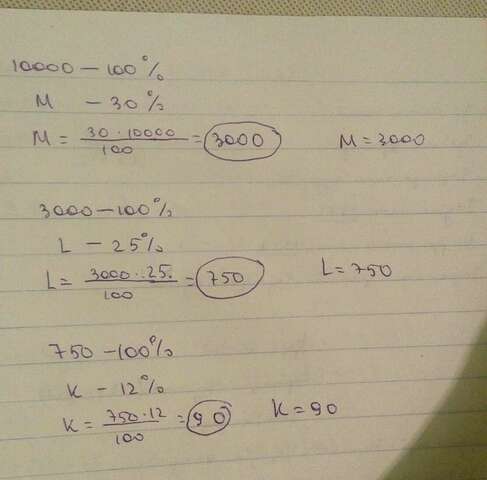 10000 – 100%
M – 30%
M = 30 · 10000 / 100 = 3000 M = 3000
3000 – 100%
L – 25%
L = 3000 · 25 / 100 = 750 L = 750
750 – 100%
K – 12%
K = 750 · 12 / 100 = 90 K = 90